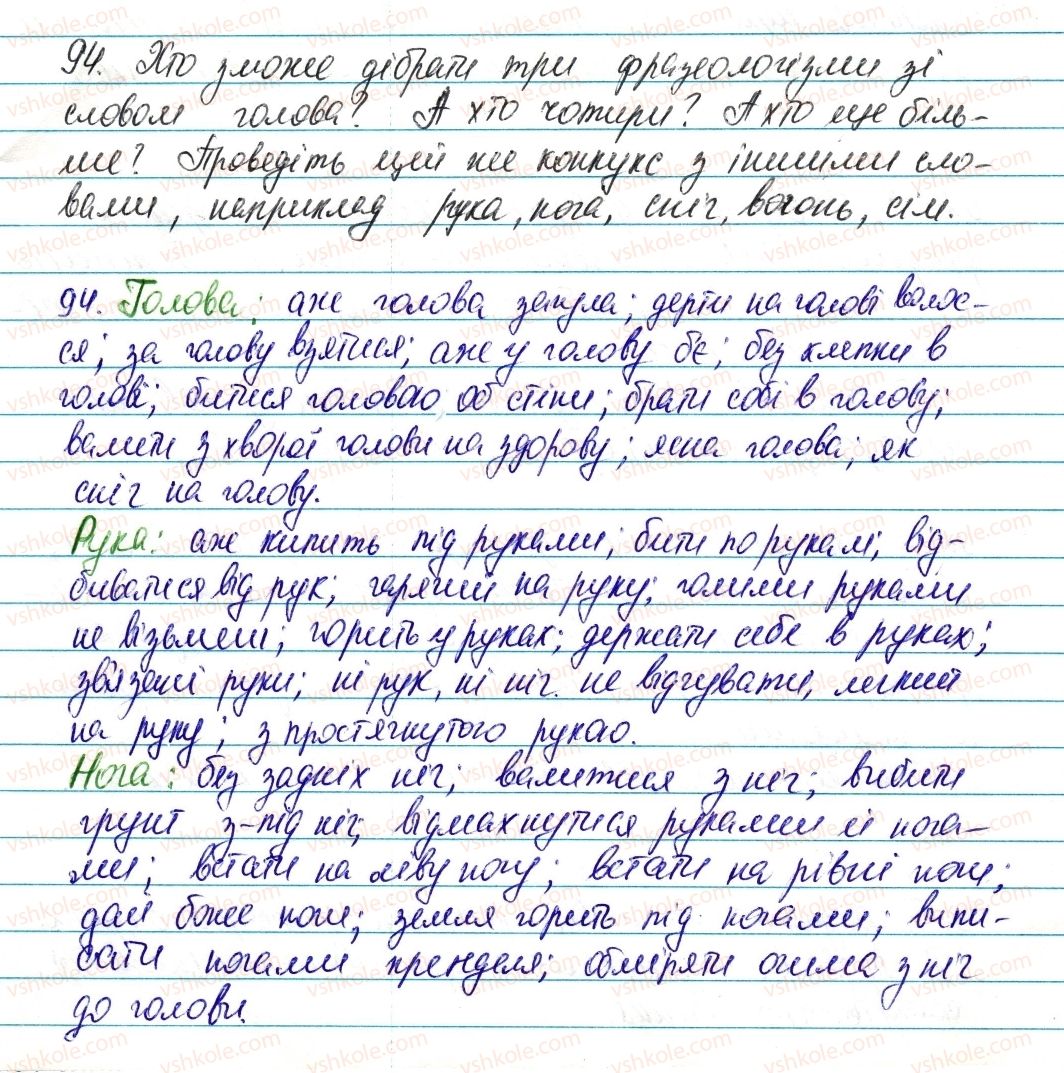 94. Хто зможе дібрати три фразеологізми зі
словом голова? А хто чотири? А хто ще біль-
ше? Проведіть цей же конкукс з іншими сло-
вами, наприклад рука, нога, сніг, вогонь, сім.
94. Голова: аже голова загула; дерти на голові волос-
ся; за голову взятися; аже у голову б'є; без клепки в
голові; битися головою об стіни; брати собі в голову;
валити з хворої голови на здорову; ясна голова; як
сніг на голову.
Рука: аже кипить під руками; бити по рукам; від-
биватися від рук; гарячий на руку; голими руками
не візьмеш; горить у руках; держати себе в руках;
зв'язані руки; ні рук, ні ніг не відчувати, легкий
на руку; з простягнутого рукою.
Нога: без задніх ніг; валитися з ніг; вибити
грунт з-під ніг; відмахнутися руками й нога-
ми; встати на ліву ногу; встати на рівні ноги;
дай боже ноги; земля горить під ногами; випи-
сати ногами кренделя; обміряти очима з ніг
до голови.